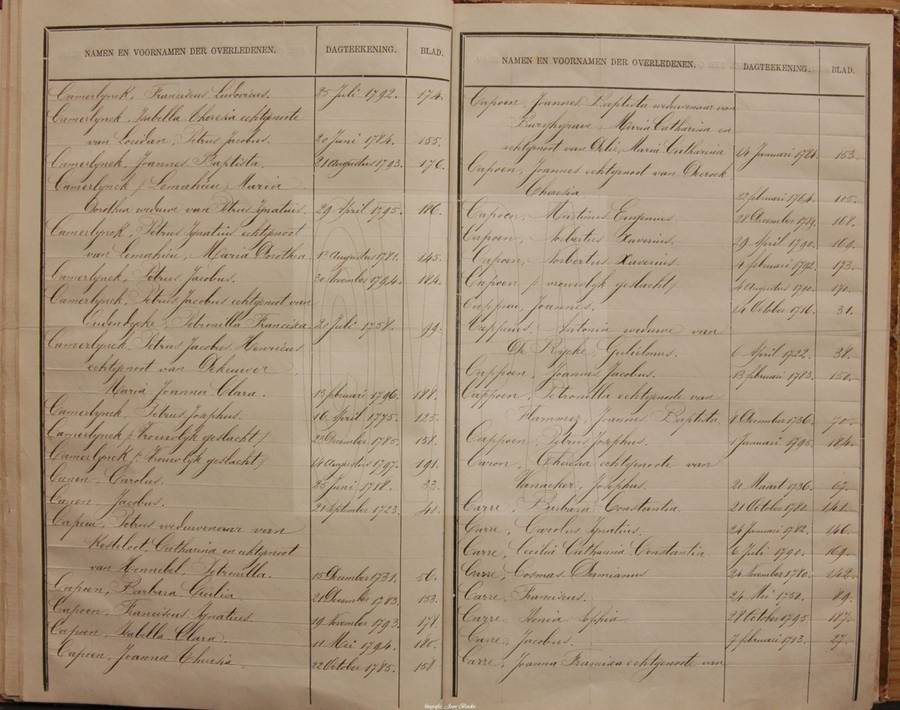 NAMEN EN VOORNAMEN DER OVERLEDENEN. DAGTEEKENING. BLAD.
Camerlynck, Franciscus Ludovicus. 25 Juli 1792. 174.
Camerlynck, Isabella Theresia echtgenote
van Loudan, Petrus Jacobus. 20 Juni 1784. 155.
Camerlynck, Joannes Baptista. 21 Augustus 1793. 176.
Camerlynck f Lemahieu, Maria
Dorothea weduwe van Petrus Ignatius. 29 April 1795. 186.
Camerlynck, Petrus Ignatius echtgenoot
van Lemahieu, Maria Dorothea. Augustus 1781. 145.
Camerlynck, Petrus Jacobus. 20 November 1794. 184.
Camerlynck, Petrus Jacobus echtgenoot van
Petronilla Francisca 21 Juli 1758. 99.
Camerlynck, Petrus Jacobus Henricus
echtgenoot van Dekeuwer
Maria Joanna Clara. 13 februari 1796. 188.
Camerlynck, Petrus Josephus. 16 April 1775. 125.
Camerlynck f Vrouwlyk geslacht f December 1785. 158.
Camerlynck f Vrouwlyk geslacht f 14 Augustus 1797. 191.
Canon, Carolus. 25 Juni 1718. 33.
Canon, Jacobus. 21 September 1723. 41.
Capein, Petrus weduwenaar van
Kesteloot, Catharina en echtgenoot
van Petronilla. 15 December 1731. 56.
Capoen, Barbara Julia. 21 December 1783. 153.
Capoen, Franciscus Ignatius. 19 November 1793. 178
Capoen, Isabella Clara. 11 Mei 1794. 180.
Capoen, Joanna Theresia. 22 October 1785. 158
NAMEN EN VOORNAMEN DER OVERLEDENEN. DAGTEEKENING. BLAD.
Capoen, Joannes Baptista weduwenaar van
Burchgrave, Maria Catharina en
echtgenoot van Maria Catharina 14 Januari 153.
Capoen, Joannes echtgenoot van
Theresia 22 februari 1764. 105.
Capoen, Martinus Eugenius. 21 December 168.
Capoen, Norbertus Xaverius. 29 April 1790. 169.
Capoen, Norbertus Xaverius. 4 februari 1792. 173.
Capoen f vrouwlyk geslacht f Augustus 170.
Joannes. 14 October 1716. 31.
Antonia weduwe van
De Rycke, Gulielmus. 6 April 1722. 38.
Cappoen, Joannes Jacobus. 13 februari 1783. 150.
Cappoen, Petronilla echtgenote van
Joannes Baptista. 1 December 1736. 70.
Cappoen, Petrus Josephus. 1 Januari 1795. 184.
Caron, Theresia echtgenoote van
Vanacker, Josephus. 21 Maart 1736. 67.
Carre, Barbara Constantia. 21 October 1780. 141.
Carre, Carolus Ignatius. 24 Januari 1782. 146.
Carre, Cecilia Catharina Constantia 6 Juli 1790. 169.
Carre, Cosmas Damianus 24 November 1780. 142.
Carre, Franciscus. 24 Mei 1750. 89.
Carre, Sophia. 28 October 1795 187.
Carre, Jacobus. 7 februari 1713. 27.
Carre, Joanna Francisca echtgenoote van